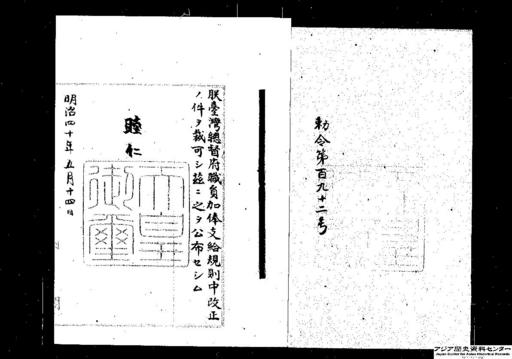 勅令第百九十二号
朕臺灣總督府職員加俸支給規則中改正
ノ件ヲ裁可シ茲ニ之ヲ公布セシム
睦仁
天皇御璽
明治四十年五月十四日
アジア歴史資料センター
Japan Center for Asian Historical Records